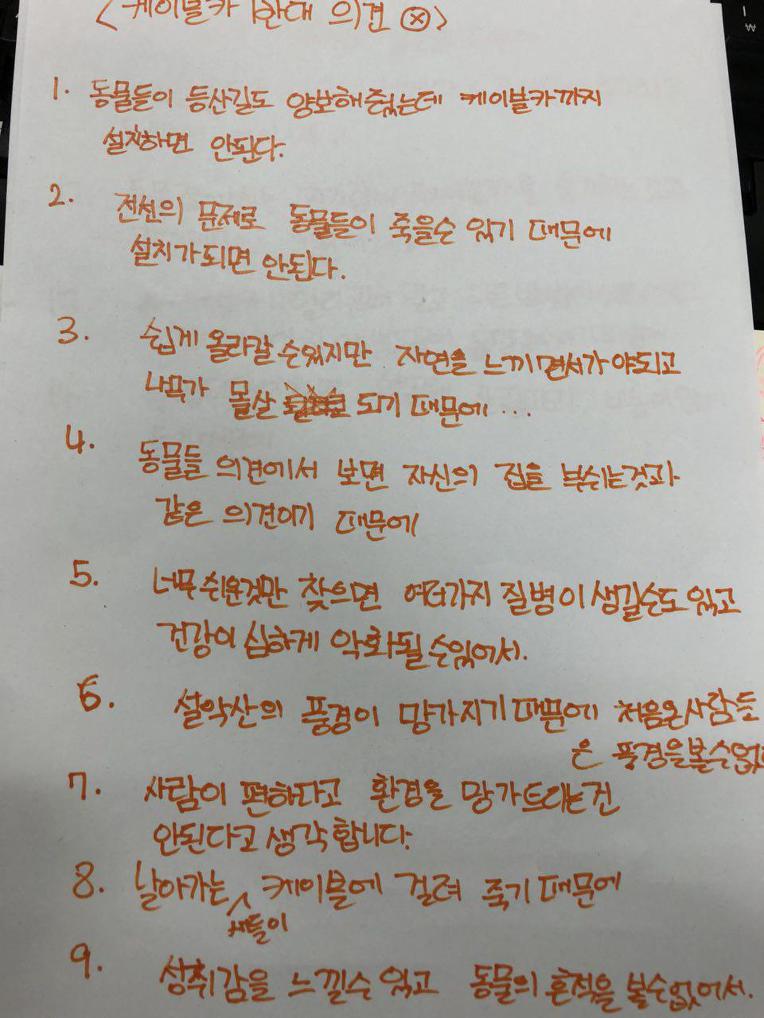 <케이블카 반대 의견 ⓧ>
1. 동물들이 등산길도 양보해 줬는데 케이블카까지
설치하면 안된다.
2. 전선의 문제로 동물들이 죽을수 있기 때문에
설치가되면 안된다.
3. 쉽게 올라갈 수있지만 자연을 느끼면서가야되고
나무가 몰살 되기 때문에...
4. 동물들 의견에서 보면 자신의 집을 부쉬는것과
같은 의견이기 때문에
5. 너무쉬운것만 찾으면 여러가지 질병이생길수도 있고
건강이 심하게 악화될수있어서.
6. 설악산의 풍경이 망가지기때문에 처음온사람들
은 풍경을볼수없
7. 사람이 편하다고 환경을 망가트리는건
안된다고생각합니다.
8. 날아가는 새들이 케이블에 걸려 죽기때문에
9. 성취감을 느낄수 있고 동물의 흔적을 볼수없어서.